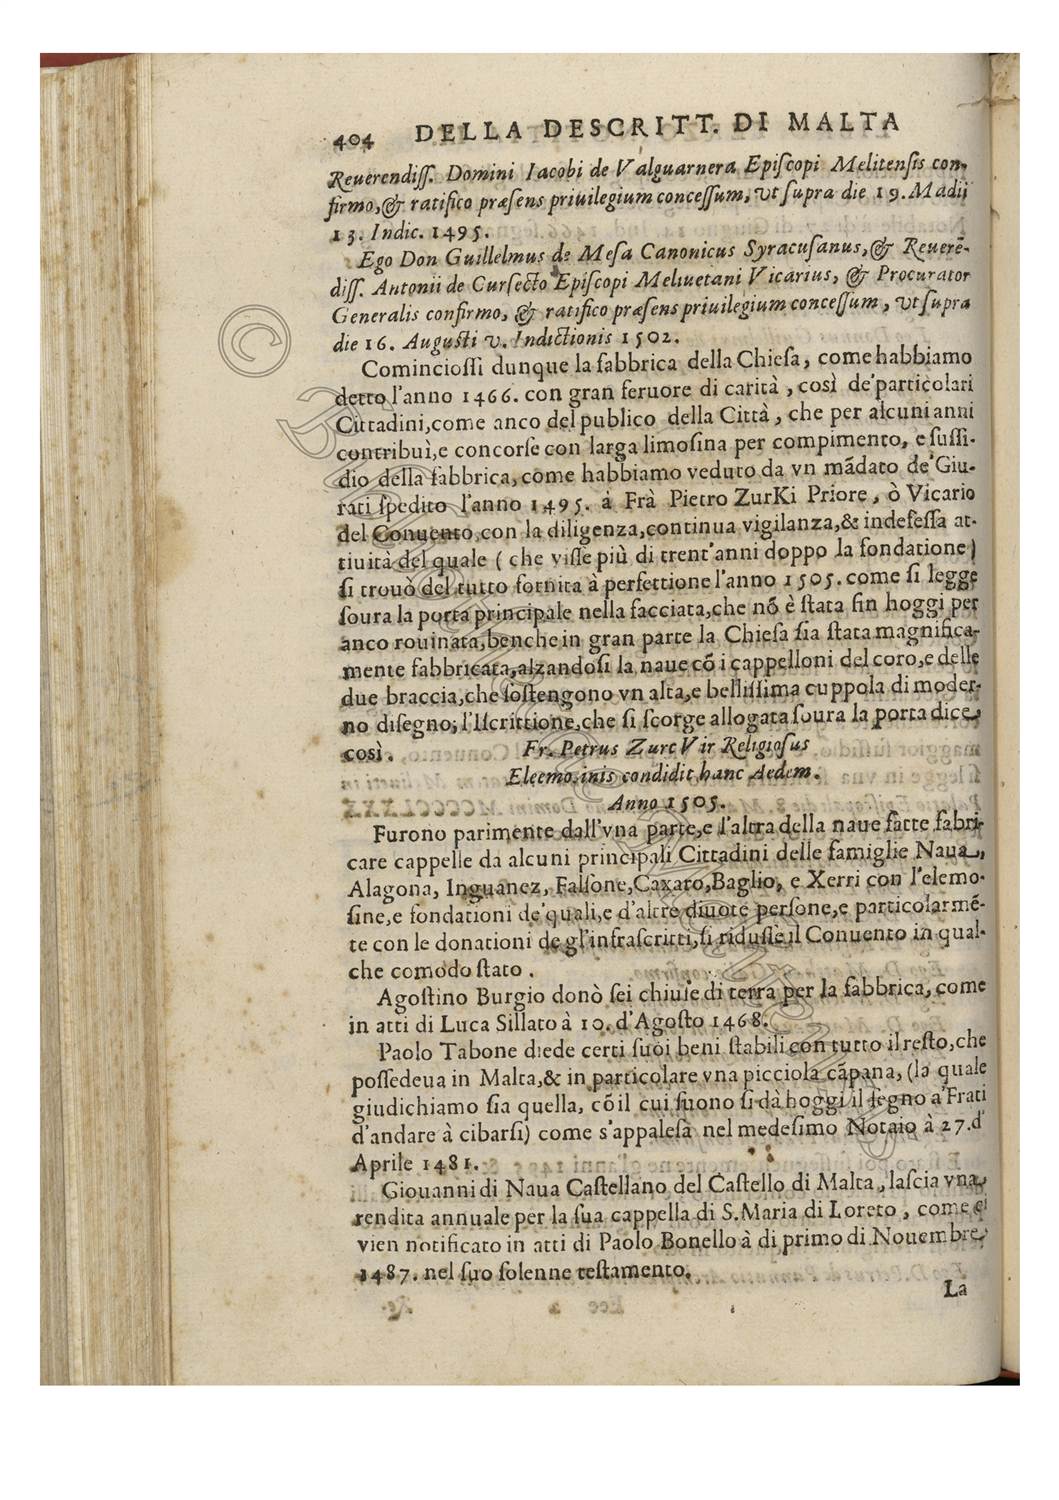 404 DELLA DESCRITT. DI MALTA
Reuerendiſſ. Domini Iacobi de Valguarnera Epiſcopi Melitenſis con-
firmo, & ratifico præſens priuilegium conceſſum, vt ſupra die 19. Madij
13. Indic. 1495.
Ego Don Guillelmus de Meſa Canonicus Syracuſanus, & Reuerẽ-
diſſ. Antonii de Curſecto Epiſcopi Meliuetani Vicarius, & Procurator
Generalis confirmo, & ratifico præſens priuilegium conceſſum, vt ſupra
die 16. Auguſti v. Indictionis 1502.
Comincioſſi dunque la fabbrica della Chieſa, come habbiamo
detto l'anno 1466. con gran feruore di carità, così de' particolari
Cittadini, come anco del publico della Città, che per alcuni anni
contribuì, e concorſe con larga limoſina per compimento, e ſuſſi-
dio della fabbrica, come habbiamo veduto da vn mãdato de' Giu-
rati ſpedito l'anno 1495. à Frà Pietro ZurKi Priore, ò Vicario
del Conuento, con la diligenza, continua vigilanza, & indefeſſa at-
tiuità del quale ( che viſſe più di trent'anni doppo la fondatione)
ſi trouò del tutto fornita à perfettione l'anno 1505. come ſi legge
ſoura la porta principale nella facciata, che nõ è ſtata fin hoggi per
anco rouinata, benche in gran parte la Chieſa ſia ſtata magnifica-
mente fabbricata, alzandoſi la naue cõ i cappelloni del coro, e delle
due braccia, che ſoſtengono vn alta, e belliſſima cuppola di moder-
no diſegno; l'Iſcrittione, che ſi ſcorge allogata ſoura la porta dice
così. Fr. Petrus Zurc Vir Religioſus
Eleemoſinis condidit hanc Aedem.
Anno 1505.
Furono parimente dall'vna parte, e l'altra della naue fatte fabri-
care cappelle da alcuni principali Cittadini delle famiglie Naua,
Alagona, Inguanez, Falſone, Caxaro, Baglio, e Xerri con l'elemo-
ſine, e fondationi de' quali, e d'altre diuote perſone, e particolarmẽ-
te con le donationi de gl'infraſcritti, ſi riduſſe il Conuento in qual-
che comodo ſtato.
Agoſtino Burgio donò ſei chiuſe di terra per la fabbrica, come
in atti di Luca Sillato à 10. d'Agoſto 1468.
Paolo Tabone diede certi ſuoi beni ſtabili con tutto il reſto, che
poſſedeua in Malta, & in particolare vna picciola cãpana, (la quale
giudichiamo ſia quella, cõ il cui ſuono ſi dà hoggi il ſegno a' Frati
d'andare à cibarſi) come s'appaleſa nel medeſimo Notaio à 27. d'
Aprile 1481.
Giouanni di Naua Caſtellano del Caſtello di Malta, laſcia vna
rendita annuale per la ſua cappella di S. Maria di Loreto, come ci
vien notificato in atti di Paolo Bonello à di primo di Nouembre
1487. nel ſuo ſolenne teſtamento.
La